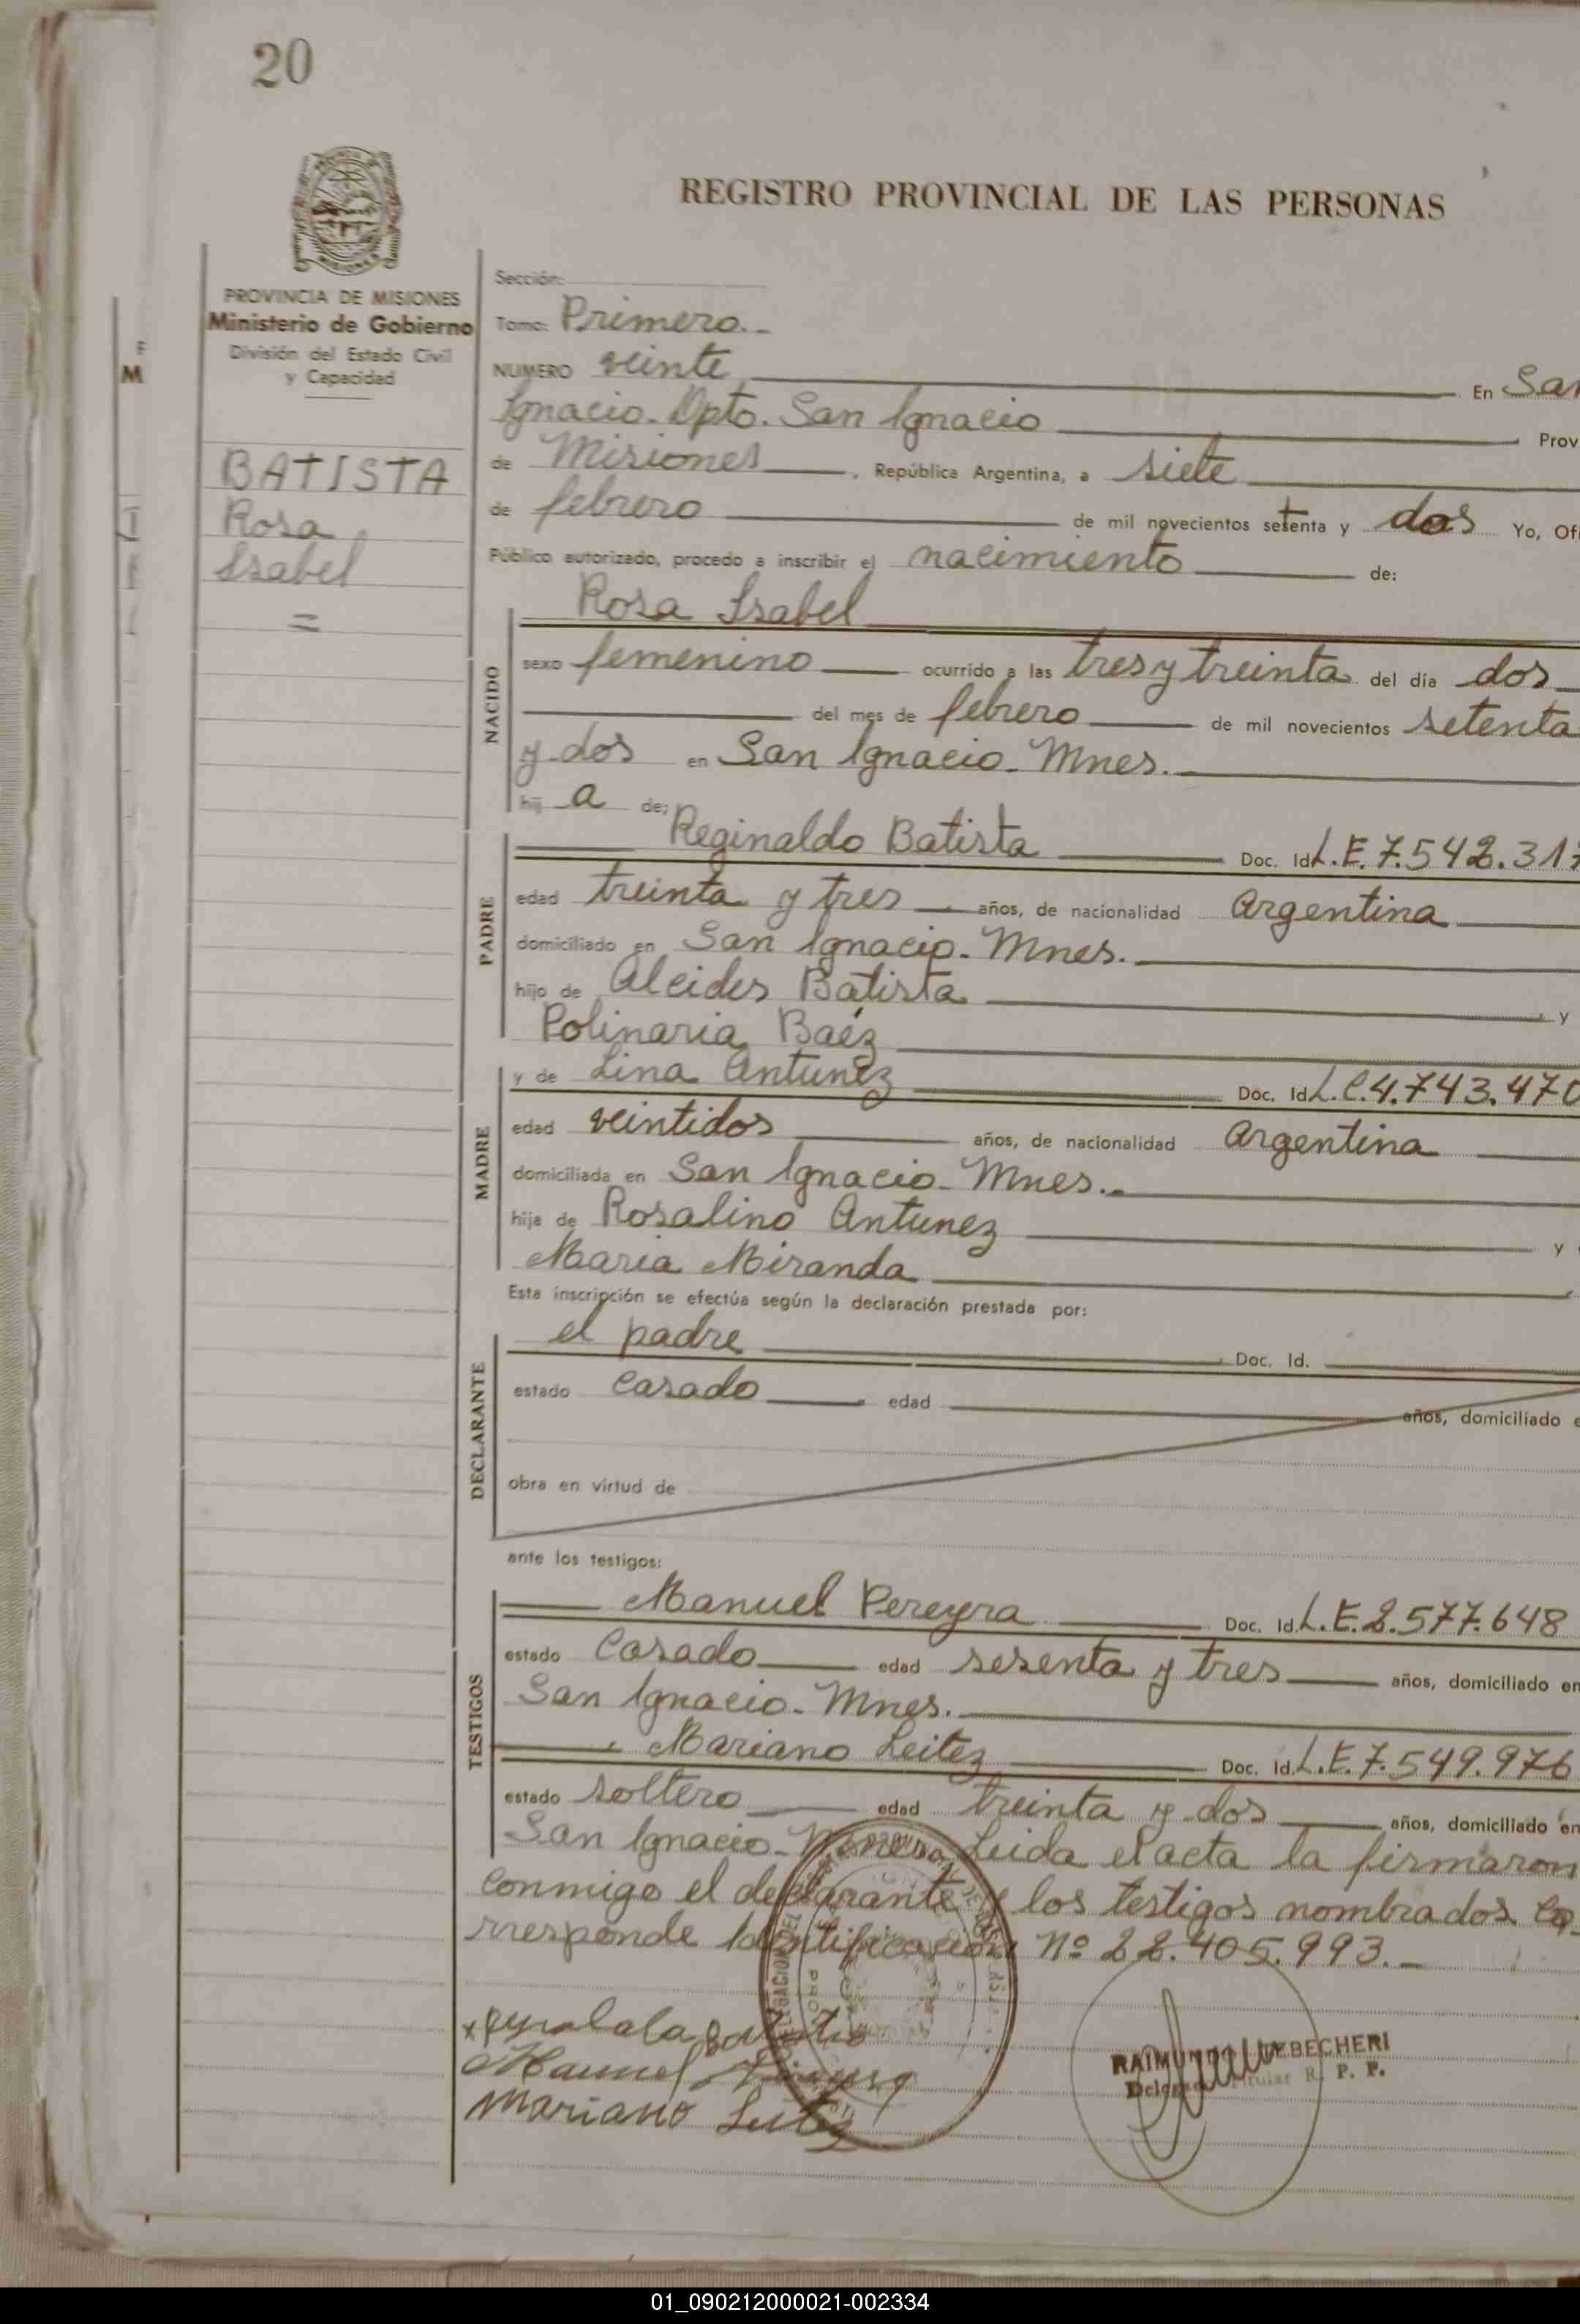 20
REGISTRO PROVINCIAL DE LAS PERSONAS
PROVINCIA DE MISIONES
Ministerio de Gobierno
División del Estado Civil
y Capacidad
BATISTA
Rosa
Isabel
=
Sección:
Tomo: Primero.-
NUMERO veinte En San
Ignacio - Dpto. San Ignacio Prov
de Misiones, República Argentina, a siete
de febrero de mil novecientos setenta y dos Yo, Ofi
Público autorizado, procedo a inscribir el nacimiento de:
Rosa Isabel
NACIDO
sexo femenino ocurrido a las tres y treinta del día dos
del mes de febrero de mil novecientos setenta
y dos en San Ignacio - Mnes.
hij a de;
PADRE
Reginaldo Batista Doc. Id L.E. 7.542.317
edad treinta y tres años, de nacionalidad Argentina
domiciliado en San Ignacio - Mnes.
hijo de Alcides Batista y
Polinaria Baéz
MADRE
y de Lina Antunez Doc. Id L.C. 4.743.470
edad veintidos años, de nacionalidad Argentina
domiciliada en San Ignacio - Mnes.
hija de Rosalino Antunez y
Maria Miranda
Esta inscripción se efectúa según la declaración prestada por:
DECLARANTE
el padre Doc. Id.
estado casado edad años, domiciliado e
obra en virtud de
ante los testigos:
TESTIGOS
Manuel Pereyra Doc. Id. L.E. 2.577.648
estado Casado edad sesenta y tres años, domiciliado en
San Ignacio - Mnes.
Mariano Leitez Doc. Id. L.E. 7.549.976
estado soltero edad treinta y dos años, domiciliado en
San Ignacio - Mnes. Leida el acta la firmaron
conmigo el declarante y los testigos nombrados Co-
rresponde Identificación Nº 22.405.993.-
Manuel
Mariano Leitez
RAIMUNDO
R. P. P.
01_090212000021-002334